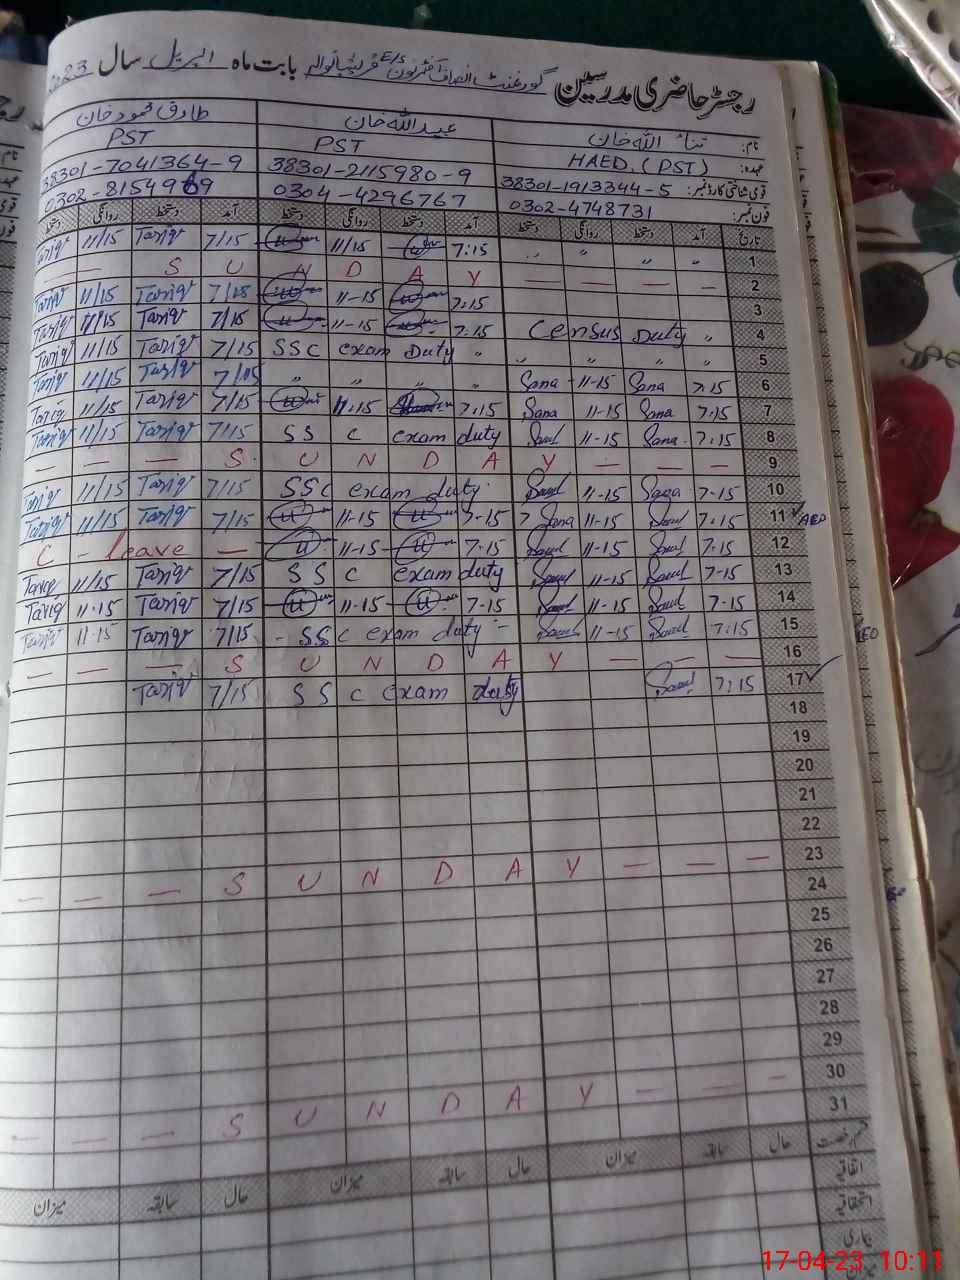 رجسٹر حاضری مدرسین گورنمنٹ انصاف آفٹرنون E/S بابت ماہ اپریل سال 2023
نام: ثناء اللہ خان عبید اللہ خان طارق محمود خان
عہدہ: HAED. (PST) PST PST
قومی شناختی کارڈ نمبر: 38301-1913344-5 38301-2115980-9 38301-7041364-9
فون نمبر: 0302-4748731 0304-4296767 0302-8154969
تاریخ آمد دستخط روانگی دستخط آمد دستخط روانگی دستخط آمد دستخط روانگی دستخط
Tariq 11/15 Tariq 7/15 11/15 7:15 〃 〃 〃 〃 1
— — S U N D A Y — — — — 2
Tariq 11/15 Tariq 7/15 11-15 7:15 3
Tariq 11/15 Tariq 7/15 11-15 7:15 Census Duty 〃 4
Tariq 11/15 Tariq 7/15 SSC exam Duty 〃 〃 〃 〃 〃 5
Tariq 11/15 Tariq 7/15 〃 〃 〃 〃 Sana 11-15 Sana 7:15 6
Tariq 11/15 Tariq 7/15 11:15 7:15 Sana 11-15 Sana 7:15 7
Tariq 11/15 Tariq 7/15 SS C exam duty 11-15 Sana 7:15 8
— — — S U N D A Y — — — 9
Tariq 11/15 Tariq 7/15 SSC exam duty 11-15 Sana 7-15 10
Tariq 11/15 Tariq 7/15 11-15 7-15 Sana 11-15 7:15 11 ✓ AEO
C - leave — 11-15 7-15 11-15 7:15 12
Tariq 11/15 Tariq 7/15 SS C exam duty 11-15 7-15 13
Tariq 11-15 Tariq 7/15 11-15 7-15 11-15 7-15 14
Tariq 11-15 Tariq 7/15 - SSC exam duty - 11-15 7:15 15
— — — S U N D A Y — — — 16
Tariq 7/15 SS C exam duty 7:15 17 ✓
18
19
20
21
22
— — — S U N D A Y — — — 23
24
25
26
27
28
29
— — — S U N D A Y — — — 30
31
قسم رخصت حال سابقہ میزان حال سابقہ میزان حال سابقہ میزان
اتفاقیہ
استحقاقیہ
بیماری
17-04-23 10:11